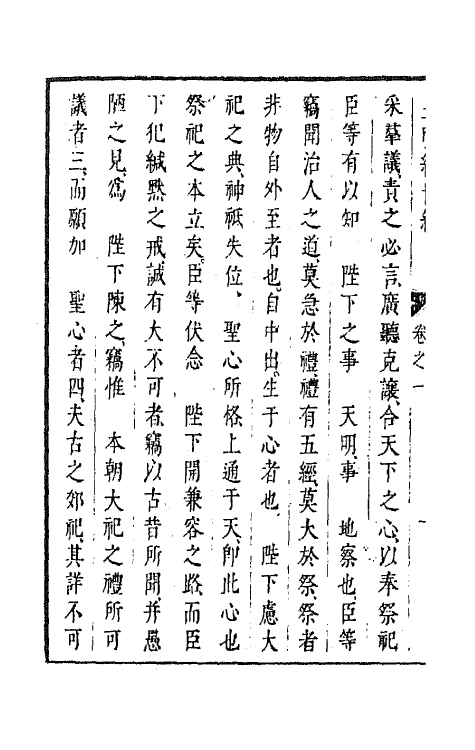 卷之一
采羣議責之必言廣聽克讓合天下之心以奉祭祀
臣等有以知　陛下之事　天明事　地察也臣等
竊聞治人之道莫急於禮禮有五經莫大於祭祭者
非物自外至者也自中出生于心者也　陛下慮大
祀之典神祗失位　聖心所格上通于天卽此心也
祭祀之本立矣臣等伏念　陛下開兼容之路而臣
下犯緘黙之戒誠有大不可者竊以古昔所聞并愚
陋之見爲　陛下陳之竊惟　本朝大祀之禮所可
議者三而願加　聖心者四夫古之郊祀其詳不可